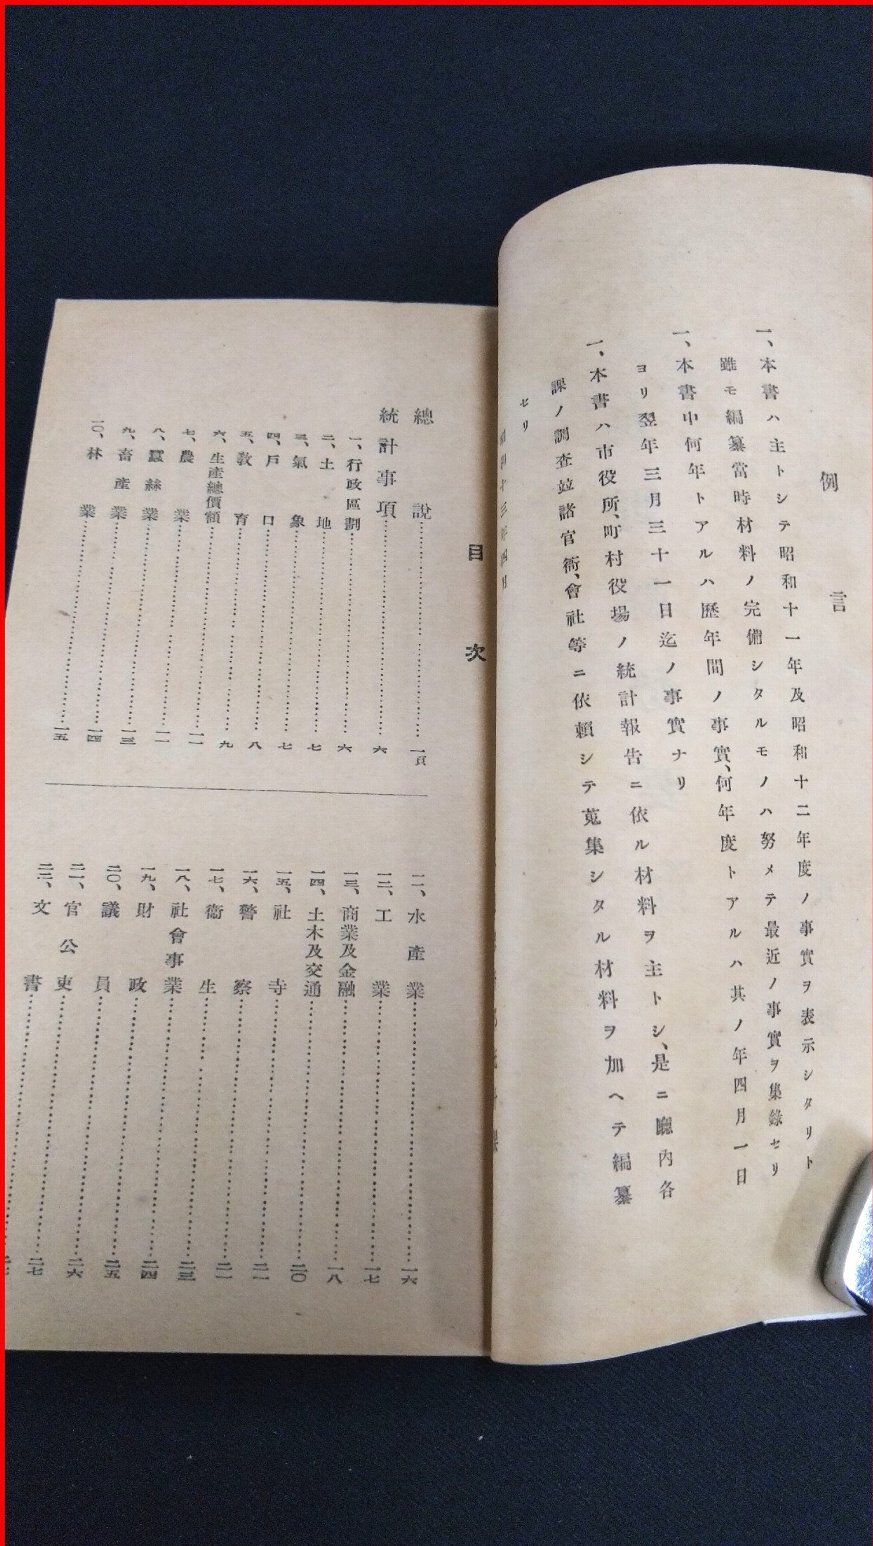 例言
一、本書ハ主トシテ昭和十一年及昭和十二年度ノ事實ヲ表示シタリト
雖モ編纂當時材料ノ完備シタルモノハ努メテ最近ノ事實ヲ集錄セリ
一、本書中何年トアルハ歷年間ノ事實、何年度トアルハ其ノ年四月一日
ヨリ翌年三月三十一日迄ノ事實ナリ
一、本書ハ市役所、町村役場ノ統計報告ニ依ル材料ヲ主トシ、是ニ廳内各
課ノ調査竝諸官衙、會社等ニ依賴シテ蒐集シタル材料ヲ加ヘテ編纂
セリ
昭和十三年四月
目次
總說……一頁
統計事項……六
一、行政區劃……六
二、土地……七
三、氣象……七
四、戶口……八
五、教育……九
六、生產總價額……一一
七、農業……一一
八、蠶絲業……一三
九、畜產業……一四
一〇、林業……一五
一一、水產業……一六
一二、工業……一七
一三、商業及金融……一八
一四、土木及交通……二〇
一五、社寺……二一
一六、警察……二一
一七、衞生……二三
一八、社會事業……二四
一九、財政……二五
二〇、議員……二六
二一、官公吏……二七
二二、文書